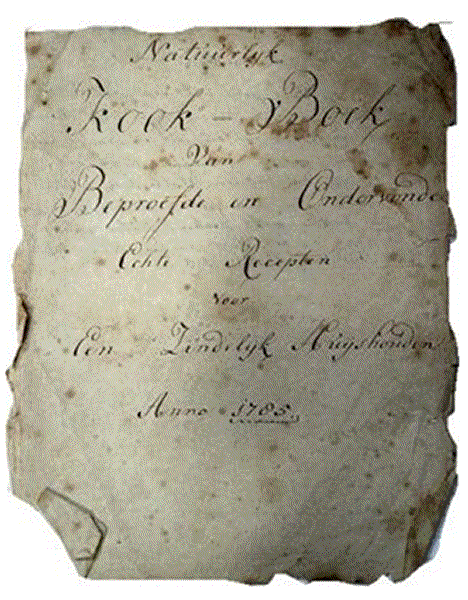 Natuurlyk
Kook-Boek
Van
Beproefde en Ondervonde
Echte Recepten
voor
Een Zindelyk Huyshouden
Anno 1785